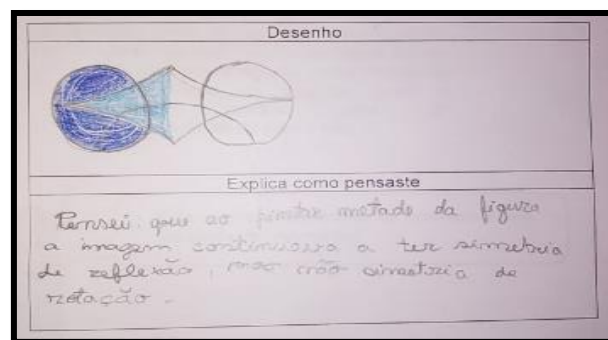 Desenho
Explica como pensaste
Pensei que ao pintar metade da figura
a imagem continuava a ter simetria
de reflexão, mas não simetria de
rotação.